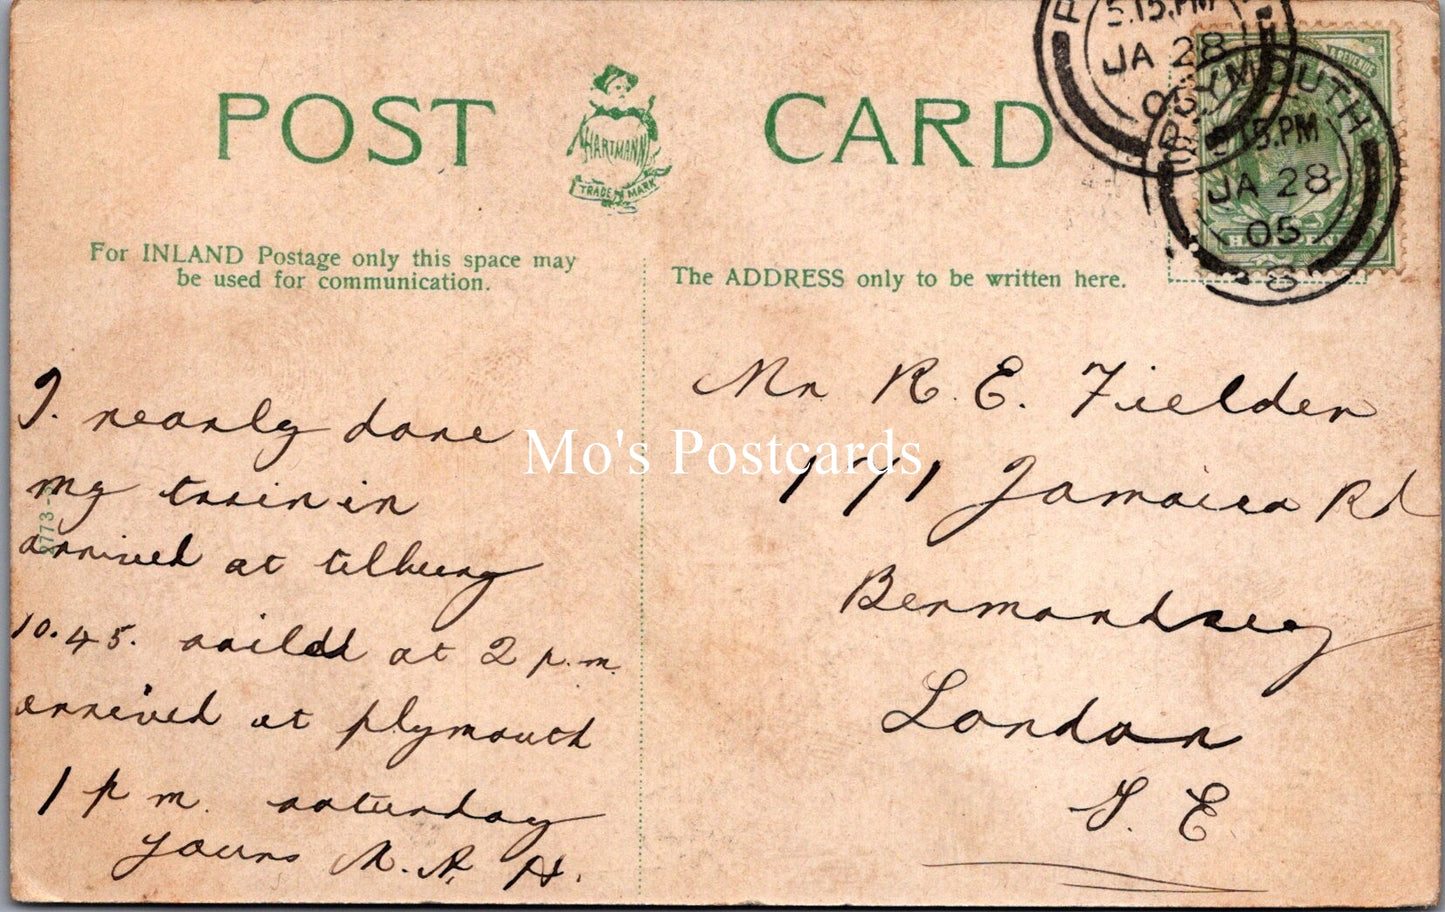 POST CARD
HARTMANN
TRADE MARK
For INLAND Postage only this space may
be used for communication.
The ADDRESS only to be written here.
& REVENUE
5.15.PM
JA 28
05
PLYMOUTH
5.15.PM
JA 28
05
8
2773-
I. nearly done
my train in
arrived at tilburg
10.45. saild at 2 p.m.
arrived at plymouth
1 p m. saturday
yours M. A. H.
Mr R. E. Fielder
171 Jamaica Rd
Bermondsey
London
S. E
Mo's Postcards